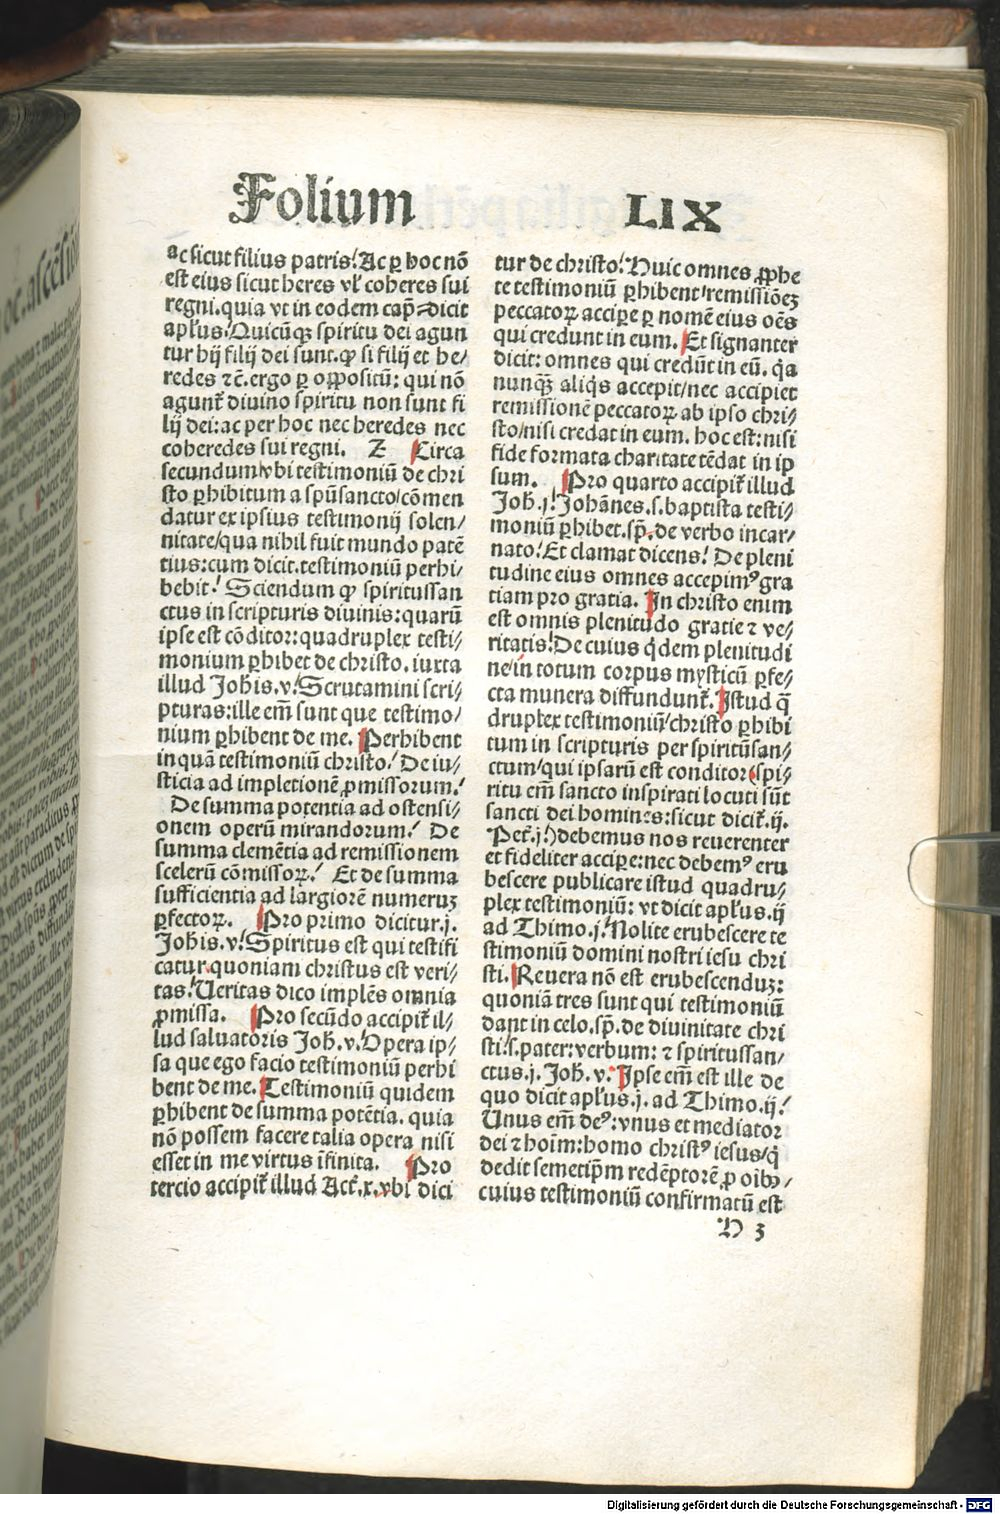 Folium LIX
ac sicut filius patris! Ac ꝑ hoc nō
est eius sicut heres vl' coheres sui
regni. quia vt in eodem cap̄. dicit
apl'us. Quicūqꝫ spiritu dei agun
tur hij filij dei sunt. ꝙ si filij et he/
redes ⁊c̄. ergo ꝑ oppositū: qui nō
agunt̄ diuino spiritu non sunt fi
lij dei: ac per hoc nec heredes nec
coheredes sui regni. Z Circa
secundum vbi testimoniū de chri
sto ꝑhibitum a spūsancto/cōmen
datur ex ipsius testimonij solen/
nitate/qua nihil fuit mundo patē
tius: cum dicit. testimonium perhi/
bebit! Sciendum ꝙ spiritussan
ctus in scripturis diuinis: quarū
ipse est cōditor: quadruplex testi/
monium ꝑhibet de christo. iuxta
illud Johis. v. Scrutamini scri/
pturas: ille em̄ sunt que testimo/
nium ꝑhibent de me. Perhibent
inquā testimoniū christo! De iu/
sticia ad impletionē ꝓmissorum!
De summa potentia ad ostensi/
onem operū mirandorum! De
summa clemētia ad remissionem
scelerū cōmissoꝝ! Et de summa
sufficientia ad largiorē numeruꝫ
ꝑfectoꝝ. Pro primo dicitur. j.
Johis. v. Spiritus est qui testifi
catur. quoniam christus est veri/
tas! Veritas dico implēs omnia
ꝓmissa. Pro secūdo accipit̄ il/
lud saluatoris Joh̄. v. Opera ip/
sa que ego facio testimoniū perhi
bent de me. Testimoniū quidem
ꝑhibent de summa potētia. quia
nō possem facere talia opera nisi
esset in me virtus īfinita. Pro
tercio accipit̄ illud Act̄. x. vbi dici
tur de christo! Huic omnes ꝓphe
te testimoniū ꝑhibent/remissiōeꝫ
peccatoꝝ accipe ꝑ nomē eius oēs
qui credunt in eum. Et signanter
dicit: omnes qui credūt in eū. qa
nunqꝫ aliqs accepit/nec accipiet
remissionē peccatoꝝ ab ipso chri/
sto/nisi credat in eum. hoc est: nisi
fide formata charitate tēdat in ip
sum. Pro quarto accipit̄ illud
Joh̄. j! Johānes. s. baptista testi/
moniū ꝑhibet. sp̄. de verbo incar/
nato! Et clamat dicens! De pleni
tudine eius omnes accepimꝰ gra
tiam pro gratia. In christo enim
est omnis plenitudo gratie ⁊ ve/
ritatis! De cuius qdem plenitudi
ne/in totum corpus mysticū ꝑfe/
cta munera diffundunt̄. Istud q̄
druplex testimoniū/christo ꝑhibi
tum in scripturis per spiritūsan/
ctum/qui ipsarū est conditor (spi/
ritu em̄ sancto inspirati locuti sūt
sancti dei homines: sicut dicit̄. ij.
Pet̄. j!) debemus nos reuerenter
et fideliter accipe: nec debemꝰ eru
bescere publicare istud quadru/
plex testimoniū: vt dicit apl'us. ij
ad Thimo. j! Nolite erubescere te
stimoniū domini nostri iesu chri
sti. Reuera nō est erubescenduꝫ:
quoniā tres sunt qui testimoniū
dant in celo. sp̄. de diuinitate chri
sti. s. pater: verbum: ⁊ spiritussan/
ctus. j. Joh̄. v. Ipse em̄ est ille de
quo dicit apl'us. j. ad Thimo. ij!
Unus em̄ deꝰ: vnus et mediator
dei ⁊ hoīm: homo christꝰ iesus/q
dedit semetip̄m redēptorē ꝓ oibꝰ/
cuius testimoniū confirmatū est
H 3
Digitalisierung gefördert durch die Deutsche Forschungsgemeinschaft - DFG